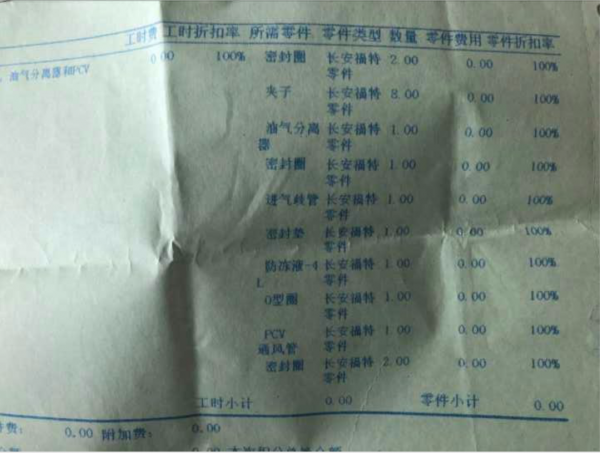 工时费 工时折扣率 所需零件 零件类型 数量 零件费用 零件折扣率
油气分离器和PCV 0.00 100% 密封圈 长安福特 2.00 0.00 100%
零件
夹子 长安福特 8.00 0.00 100%
零件
油气分离 长安福特 1.00 0.00 100%
器 零件
密封圈 长安福特 1.00 0.00 100%
零件
进气歧管 长安福特 1.00 0.00 100%
零件
密封垫 长安福特 1.00 0.00 100%
零件
防冻液-4 长安福特 1.00 0.00 100%
L 零件
O型圈 长安福特 1.00 0.00 100%
零件
PCV 长安福特 1.00 0.00 100%
通风管 零件
密封圈 长安福特 2.00 0.00 100%
零件
工时小计 0.00 零件小计 0.00
费: 0.00 附加费: 0.00